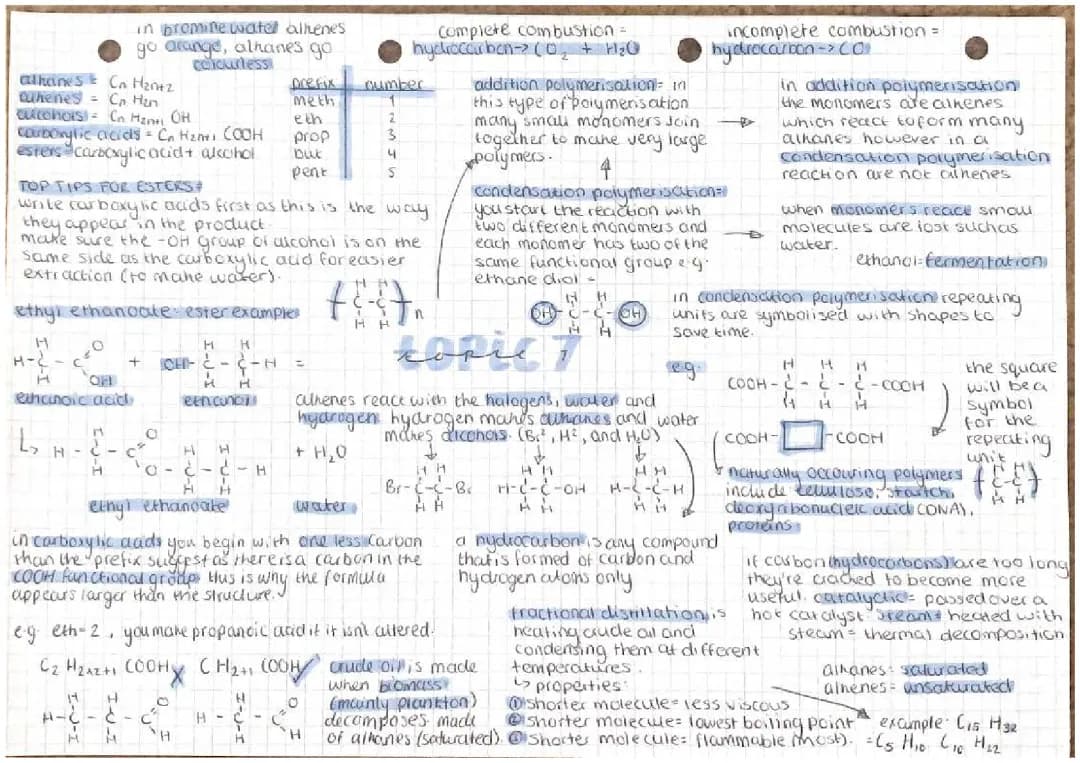 in bromine water alkenes
go orange, alkanes go
colourless
complete combustion =
hydrocarbon → CO₂ + H₂O
incomplete combustion =
hydrocarbon → CO
alkanes = Cn H2n+2
alkenes = Cn H2n
alcohols = Cn H2n+1 OH
carboxylic acids = Cn H2n+1 COOH
esters = carboxylic acid + alcohol
prefix number
meth 1
eth 2
prop 3
but 4
pent 5
addition polymerisation = in
this type of polymerisation
many small monomers join
together to make very large
polymers.
in addition polymerisation
the monomers are alkenes
which react to form many
alkanes however in a
condensation polymerisation
reaction are not alkenes
TOP TIPS FOR ESTERS =
write carboxylic acids first as this is the way
they appear in the product.
make sure the -OH group of alcohol is on the
same side as the carboxylic acid for easier
extraction (to make water).
condensation polymerisation =
you start the reaction with
two different monomers and
each monomer has two of the
same functional group e.g.
ethane diol =
when monomers react small
molecules are lost such as
water.
ethanol = fermentation
H H
C-C n
H H
H H
OH-C-C-OH
H H
in condensation polymerisation repeating
units are symbolised with shapes to
save time.
ethyl ethanoate: ester example
topic 7
topic 7
H O
H-C-C
H OH
+
H H
OH-C-C-H =
H H
ethanoic acid ethanol
alkenes react with the halogens, water and
hydrogen. hydrogen makes alkanes and water
makes alcohols. (Br², H², and H₂O)
e.g.
H H H
COOH-C-C-C-COOH
H H H
the square
will be a
symbol
for the
repeating
unit
COOH- -COOH
H H
C-C
H H
H O H H
H-C-C O-C-C-H + H₂O
H H H
ethyl ethanoate water
H H
Br-C-C-Br
H H
H H
H-C-C-OH
H H
H H
H-C-C-H
H H
naturally occuring polymers
include cellulose, starch,
deoxyribonucleic acid (DNA),
proteins
in carboxylic acids you begin with one less carbon
than the prefix suggest as there is a carbon in the
COOH functional group thus is why the formula
appears larger than the structure.
a hydrocarbon is any compound
that is formed of carbon and
hydrogen atoms only
if carbon (hydrocarbons) are too long
they're cracked to become more
useful. catalyctic = passed over a
hot catalyst. steam = heated with
steam = thermal decomposition
e.g. eth=2, you make propanoic acid if it isn't altered.
C2 H2x2+1 COOH X C H2+1 COOH ✓
H H O
H-C-C-C
H H OH
H O
H-C-C
H OH
crude oil is made
when biomass
(mainly plankton)
decomposes made
of alkanes (saturated).
fractional distillation is
heating crude oil and
condensing them at different
temperatures.
↳ properties:
① shorter molecule = less viscous
② shorter molecule = lowest boiling point
③ shorter molecule = flammable (most).
alkanes = saturated
alkenes = unsaturated
example: C15 H32
= C5 H10 C10 H22